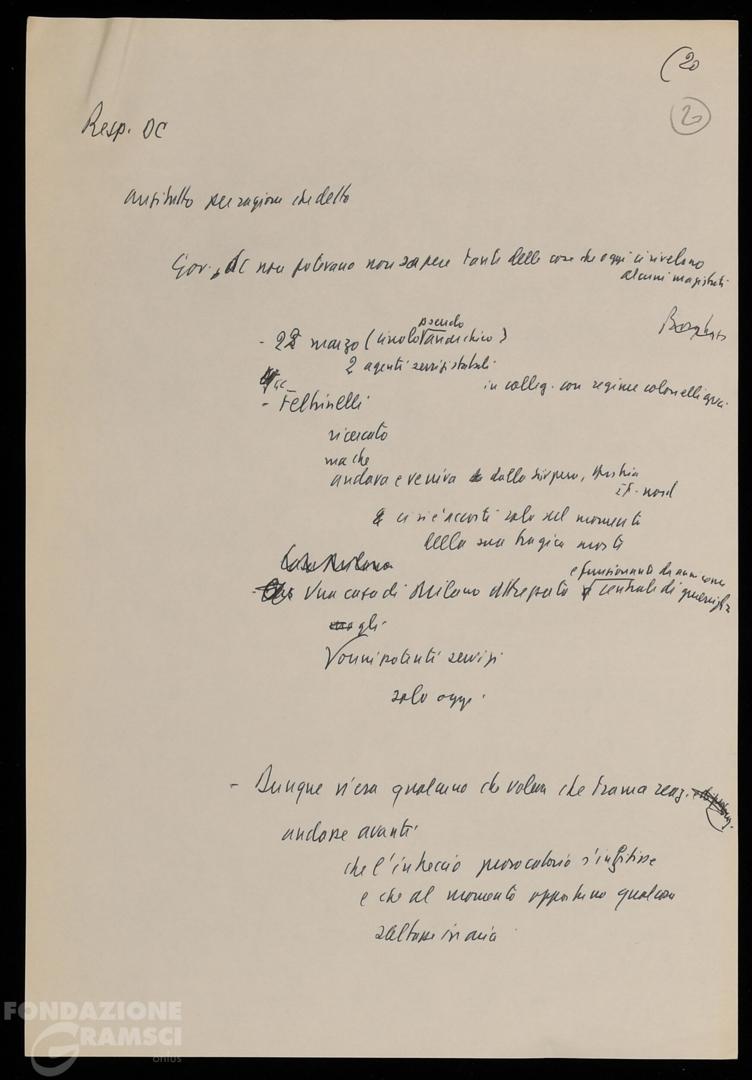 (20
2
Resp. DC
anzitutto per ragione che detto
Gov. DC non potevano non sapere tante delle cose che oggi ci rivelano
alcuni magistrati
- 22 marzo (circolo pseudo anarchico)
2 agenti servizi statali
in colleg. con regime colonnelli greci
- Feltrinelli
ricercato
ma che
andava e veniva dalla Svizzera, Austria
It. nord
ci si è accorti solo nel momento
della sua tragica morte
- Una casa di Milano attrezzata e funzionante da anni come centrale di guerriglia
gli
onnipotenti servizi
solo oggi.
- Dunque v'era qualcuno che voleva che trama reaz.
andasse avanti
che l'intreccio provocatorio s'infittisse
e che al momento opportuno qualcosa
saltasse in aria
FONDAZIONE
GRAMSCI
onlus